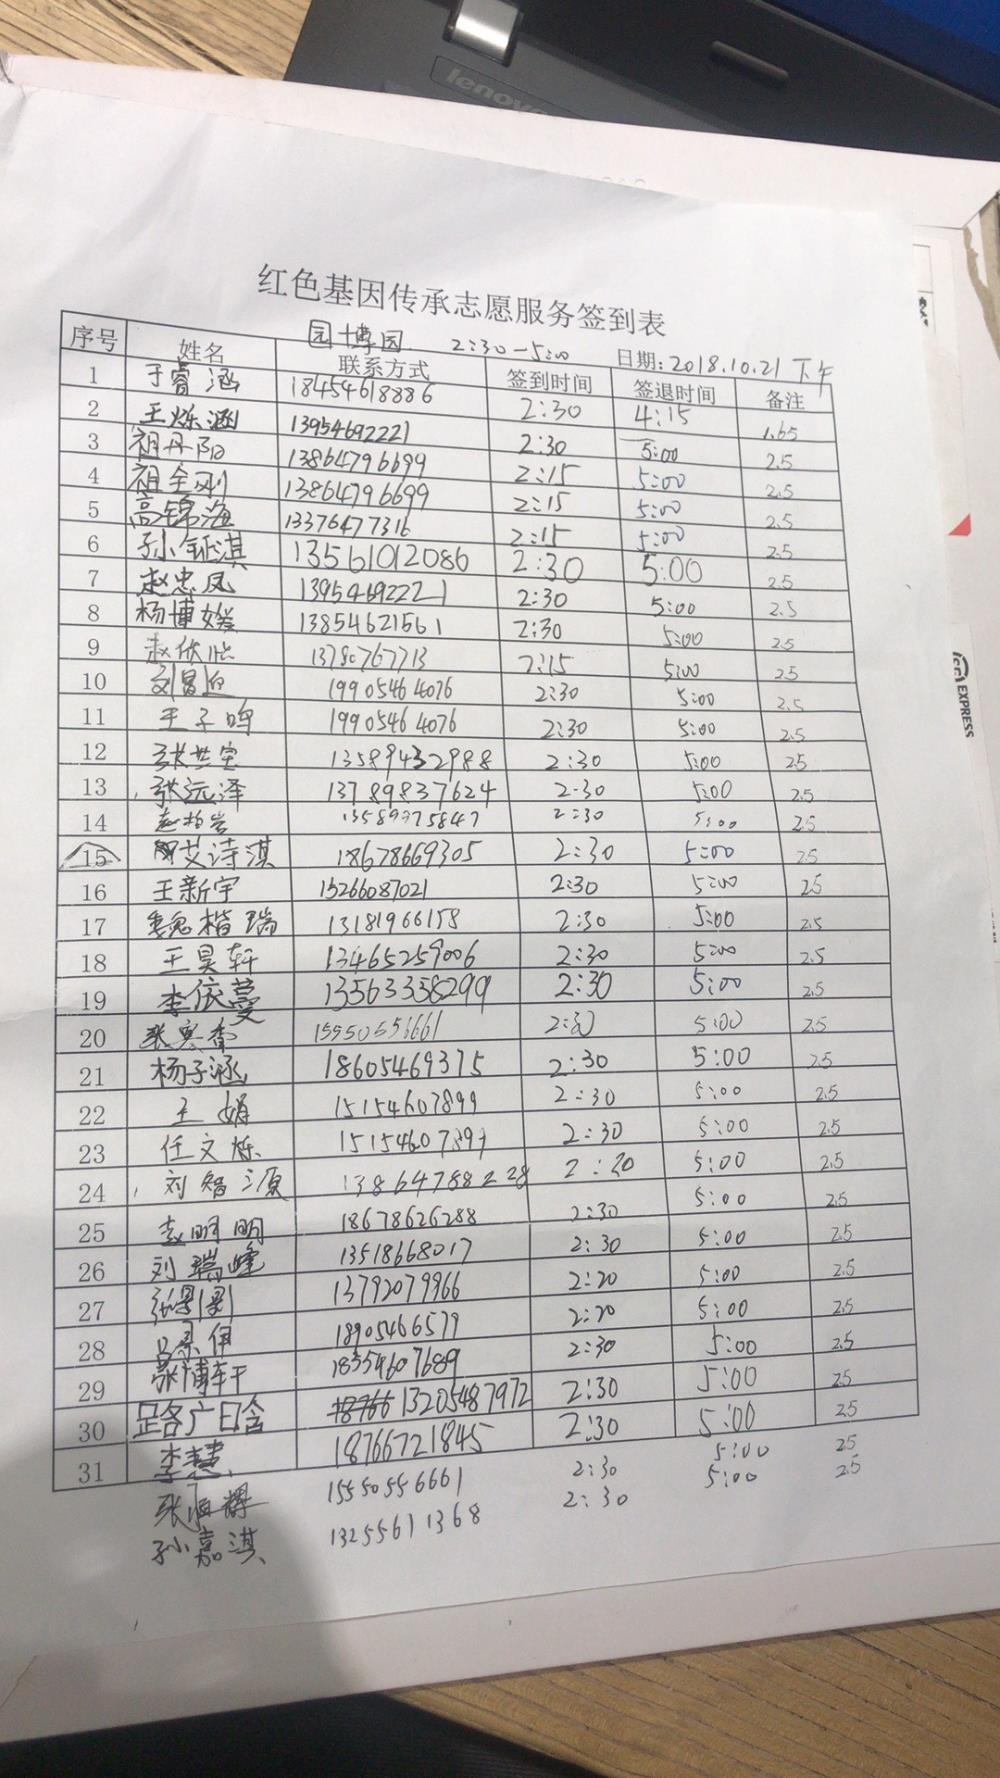 lenovo
红色基因传承志愿服务签到表
园博园 2:30-5:00 日期:2018.10.21下午
序号 姓名 联系方式 签到时间 签退时间 备注
1 于睿涵 18454618886 2:30 4:15 1.65
2 王烁涵 13954692221 2:30 5:00 2.5
3 祖丹阳 13864796699 2:15 5:00 2.5
4 祖全刚 13864796699 2:15 5:00 2.5
5 高锦海 13376477316 2:15 5:00 2.5
6 孙钲淇 13561012086 2:30 5:00 2.5
7 赵忠凤 13954692221 2:30 5:00 2.5
8 杨博媛 13854621561 2:30 5:00 2.5
9 赵依 13780767713 2:15 5:00 2.5
10 刘 19905464076 2:30 5:00 2.5
11 王子鸣 19905464076 2:30 5:00 2.5
12 张世宝 13589432988 2:30 5:00 2.5
13 张远泽 13789837624 2:30 5:00 2.5
14 赵柏岩 13589975847 2:30 5:00 2.5
15 艾诗淇 18678669305 2:30 5:00 2.5
16 王新宇 15266087021 2:30 5:00 2.5
17 魏楷瑞 13181966158 2:30 5:00 2.5
18 王昊轩 13465259006 2:30 5:00 2.5
19 李依蔓 13563358299 2:30 5:00 2.5
20 张 香 15550556661 2:30 5:00 2.5
21 杨子涵 18605469375 2:30 5:00 2.5
22 王娟 15154607899 2:30 5:00 2.5
23 任文烁 15154607899 2:30 5:00 2.5
24 刘智源 13864788228 2:20 5:00 2.5
25 孟明明 18678626288 2:30 5:00
26 刘瑞峰 13518668017 2:30 5:00 2.5
27 张影 13792079966 2:20 5:00 2.5
28 吕 伊 18905466579 2:20 5:00 2.5
29 张博轩 18354607689 2:30 5:00 2.5
30 路广晗 13205487972 2:30 5:00 2.5
31 李慧 18766721845 2:30 5:00 2.5
张 辉 15550556661 2:30 5:00 2.5
孙嘉淇 13255611368 2:30 5:00 2.5
EXPRESS